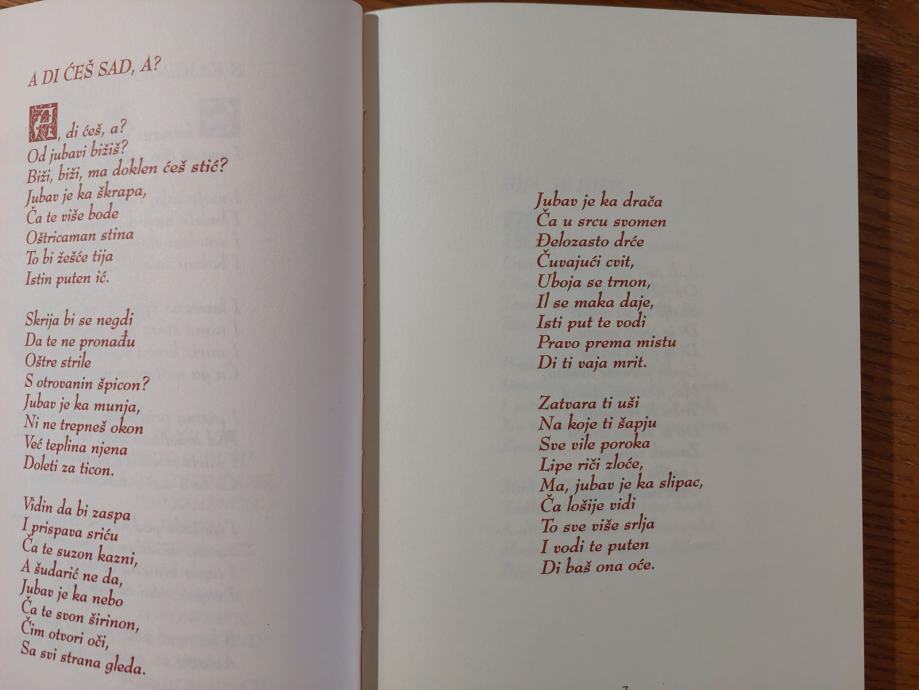 A DI ĆEŠ SAD, A?
A, di ćeš, a?
Od jubavi bižiš?
Biži, biži, ma doklen ćeš stić?
Jubav je ka škrapa,
Ča te više bode
Oštricaman stina
To bi žešće tija
Istin puten ić.
Skrija bi se negdi
Da te ne pronađu
Oštre strile
S otrovanin špicon?
Jubav je ka munja,
Ni ne trepneš okon
Već teplina njena
Doleti za ticon.
Vidin da bi zaspa
I prispava sriću
Ča te suzon kazni,
A šudarić ne da,
Jubav je ka nebo
Ča te svon širinon,
Čim otvori oči,
Sa svi strana gleda.
Jubav je ka drača
Ča u srcu svomen
Đelozasto drće
Čuvajući cvit,
Uboja se trnon,
Il se maka daje,
Isti put te vodi
Pravo prema mistu
Di ti vaja mrit.
Zatvara ti uši
Na koje ti šapju
Sve vile poroka
Lipe riči zloće,
Ma, jubav je ka slipac,
Ča lošije vidi
To sve više srlja
I vodi te puten
Di baš ona oće.